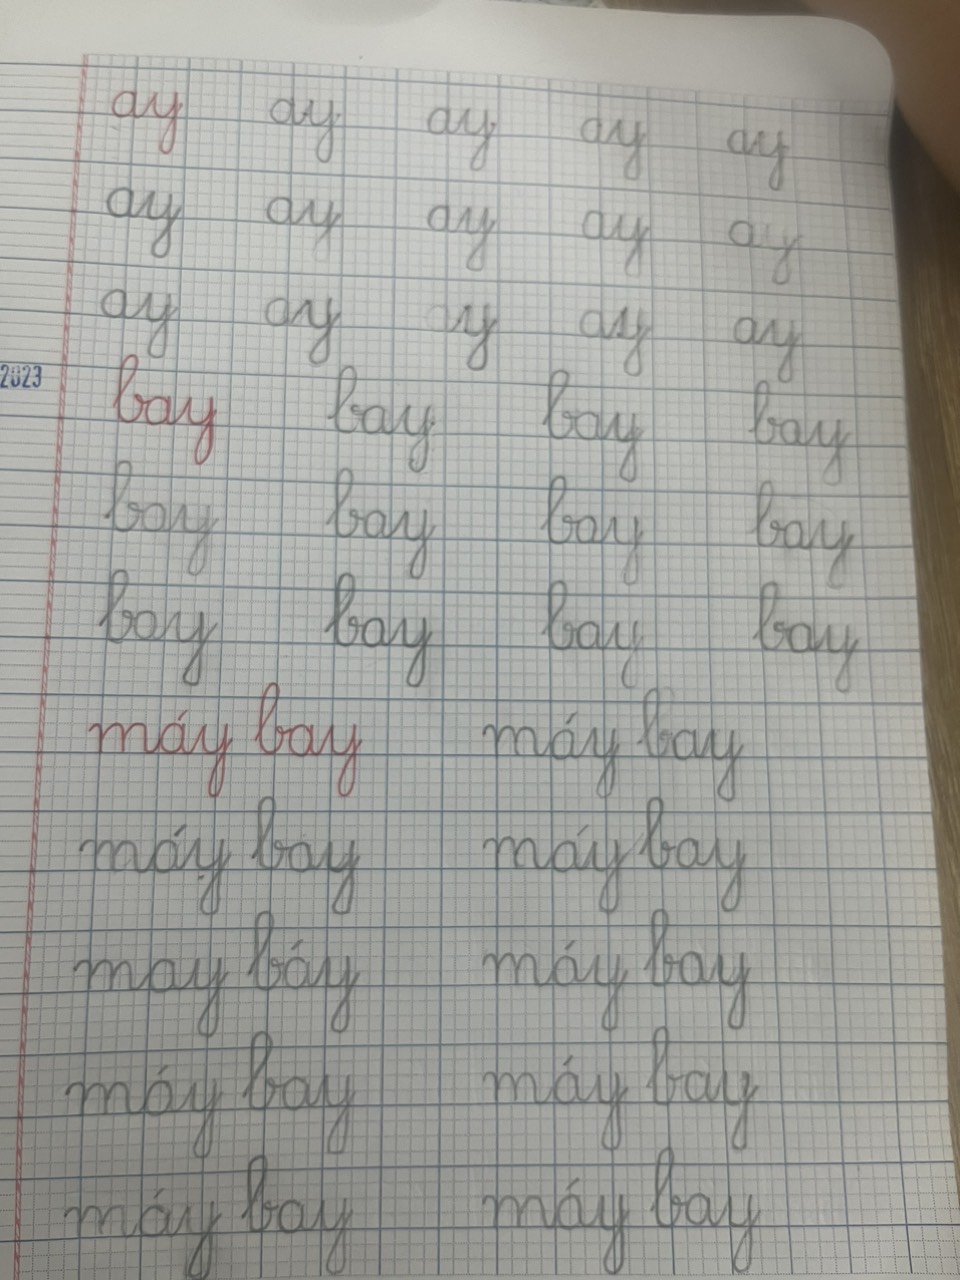 ay ay ay ay ay
ay ay ay ay ay
ay ay ay ay ay
2023
bay bay bay bay
bay bay bay bay
bay bay bay bay
máy bay máy bay
máy bay máy bay
may báy máy bay
máy bay máy bay
máy bay máy bay